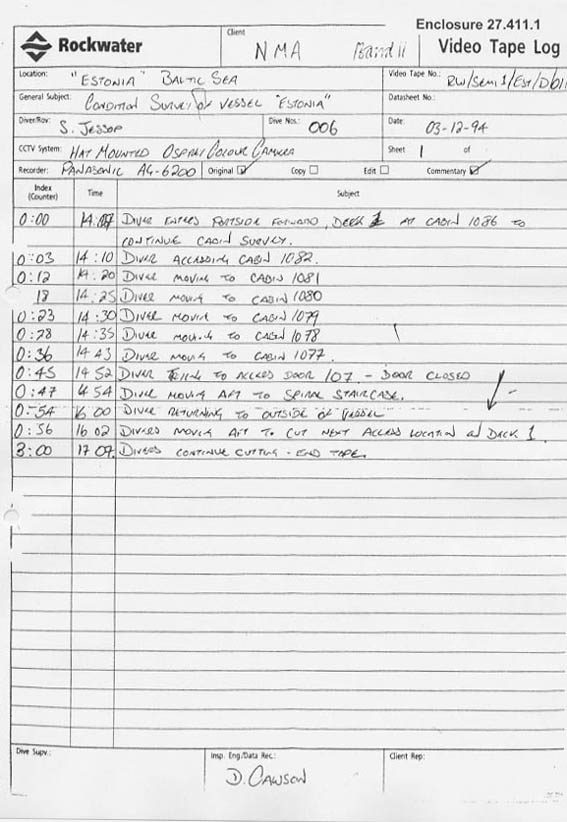 Enclosure 27.411.1
Rockwater
Client
NMA Band II
Video Tape Log
Location: "ESTONIA" BALTIC SEA
Video Tape No.: RW/SEMI 1/EST/D/011
General Subject: CONDITION SURVEY OF VESSEL "ESTONIA"
Datasheet No.:
Diver/Rov: S. JESSOP
Dive Nos.: 006
Date: 03-12-94
CCTV System: HAT MOUNTED OSPREY COLOUR CAMERA
Sheet 1 of
Recorder: PANASONIC AG-6200
Original ☑ Copy ☐ Edit ☐ Commentary ☑
Index (Counter) Time Subject
0:00 14:07 DIVER ENTERS PORTSIDE FORWARD, DECK 1 AT CABIN 1086 TO
CONTINUE CABIN SURVEY.
0:03 14:10 DIVER ACCESSING CABIN 1082.
0:12 14:20 DIVER MOVING TO CABIN 1081
18 14:25 DIVER MOVING TO CABIN 1080
0:23 14:30 DIVER MOVING TO CABIN 1079
0:28 14:35 DIVER MOVING TO CABIN 1078
0:36 14 43 DIVER MOVING TO CABIN 1077.
0:45 14 52 DIVER TO ACCESS DOOR 107 - DOOR CLOSED
0:47 54 DIVER MOVING AFT TO SPIRAL STAIRCASE.
0:54 16 00 DIVER RETURNING TO OUTSIDE OF VESSEL
0:56 16 02 DIVERS MOVING AFT TO CUT NEXT ACCESS LOCATION ON DECK 1.
3:00 17 07. DIVERS CONTINUE CUTTING - END TAPE.
Dive Supv.:
Insp. Eng./Data Rec.:
Client Rep:
D. CAWSON